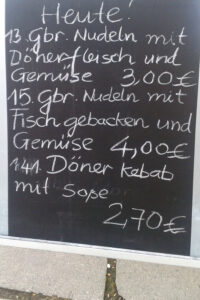 Heute!
13. Gbr. Nudeln mit
Dönerfleisch und
Gemüse 3,00€
15. Gbr. Nudeln mit
Fisch gebacken und
Gemüse 4,00€
141. Döner Kebab
mit Soße
2,70€